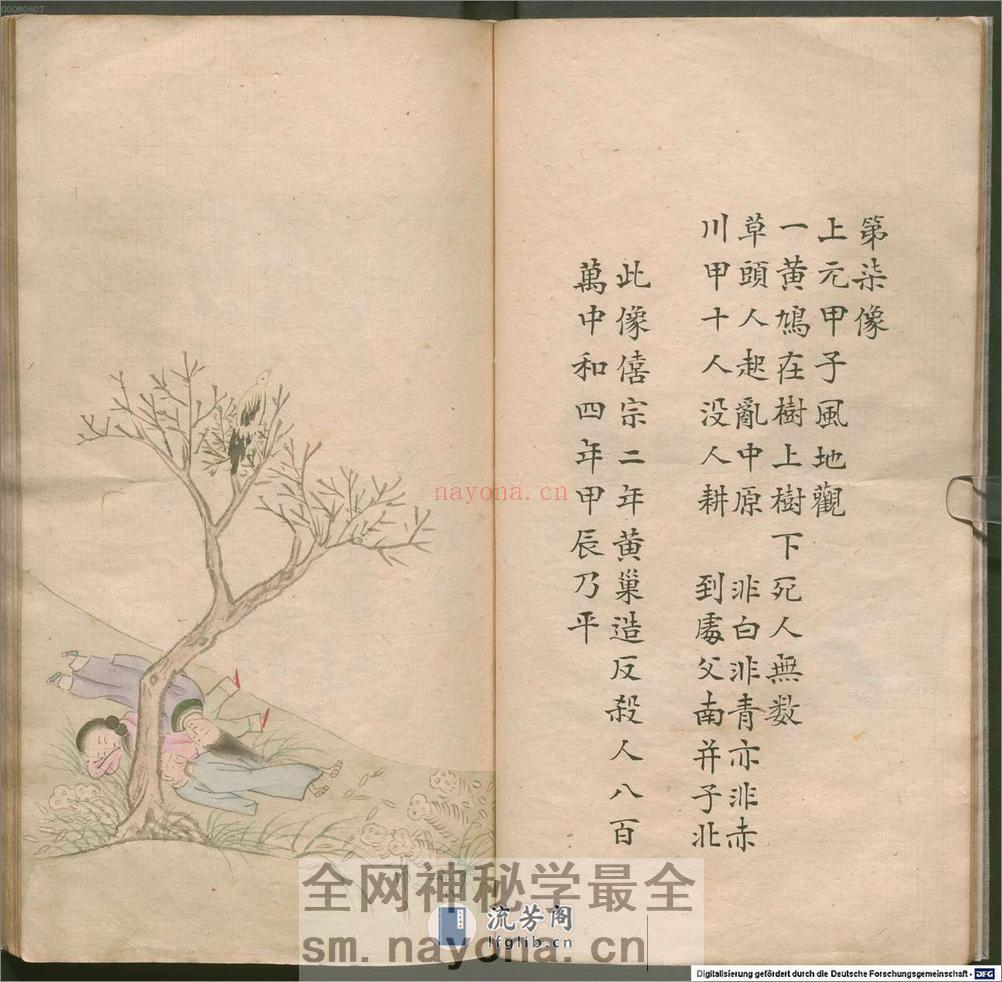 00080607
第柒像
上元甲子風地觀
一黄鳩在樹上樹下死人無数
草頭人起亂中原 非白非青亦非赤
川甲十人没人耕 到處父南并子北
此像僖宗二年黄巢造反殺人八百
萬中和四年甲辰乃平
nayona.cn
全网神秘学最全
流芳阁
lfglib.cn
sm.nayona.cn
Digitalisierung gefördert durch die Deutsche Forschungsgemeinschaft - DFG